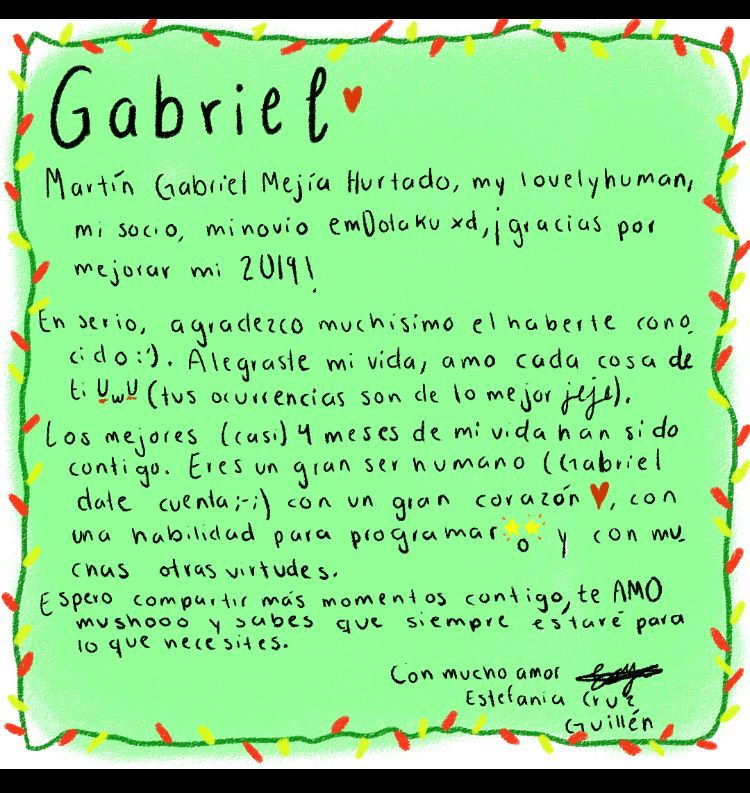 Gabriel
Martín Gabriel Mejía Hurtado, my lovelyhuman,
mi socio, minovio emDolaku xd, ¡gracias por
mejorar mi 2019!
En serio, agradezco muchísimo el haberte cono_
cido :'). Alegraste mi vida, amo cada cosa de
ti UwU (tus ocurrencias son de lo mejor jeje).
Los mejores (casi) 4 meses de mi vida han sido
contigo. Eres un gran ser humano (Gabriel
date cuenta ;-;) con un gran corazón ♥, con
una habilidad para programar y con mu_
chas otras virtudes.
Espero compartir más momentos contigo, te AMO
mushooo y sabes que siempre estaré para
lo que necesites.
Con mucho amor
Estefania Cruz
Guillén